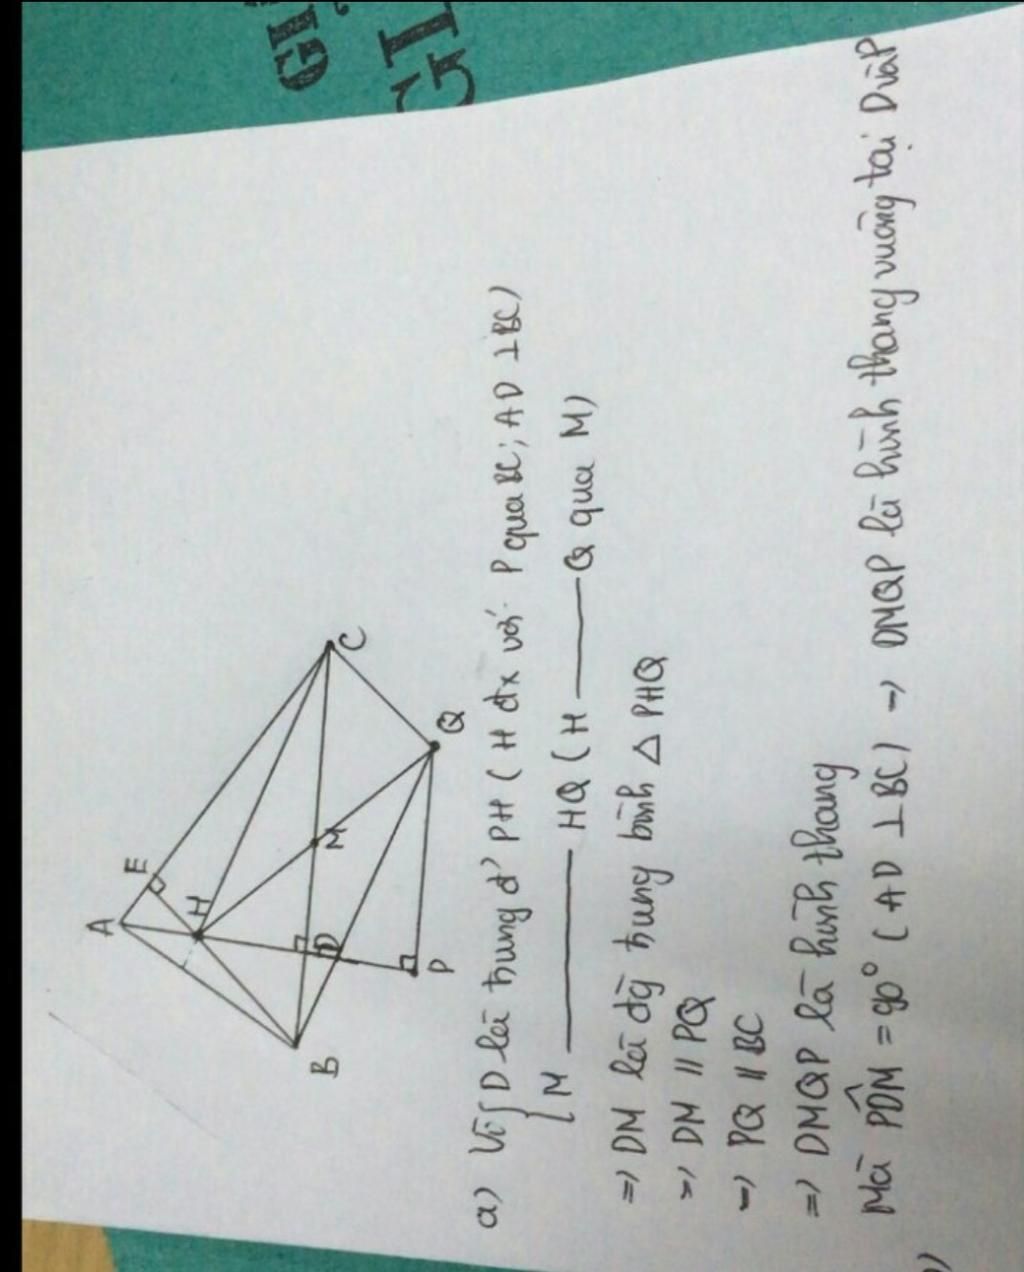 GI
GI
A
E
H
B
D
M
C
P
Q
a) Vì { D là trung đ' PH ( H đx với P qua BC ; AD ⊥ BC )
M ——— HQ ( H ——— Q qua M )
=> DM là đg trung bình △ PHQ
=> DM // PQ
=> PQ // BC
=> DMQP là hình thang
Mà PDM̂ = 90° ( AD ⊥ BC ) => DMQP là hình thang vuông tại D và P